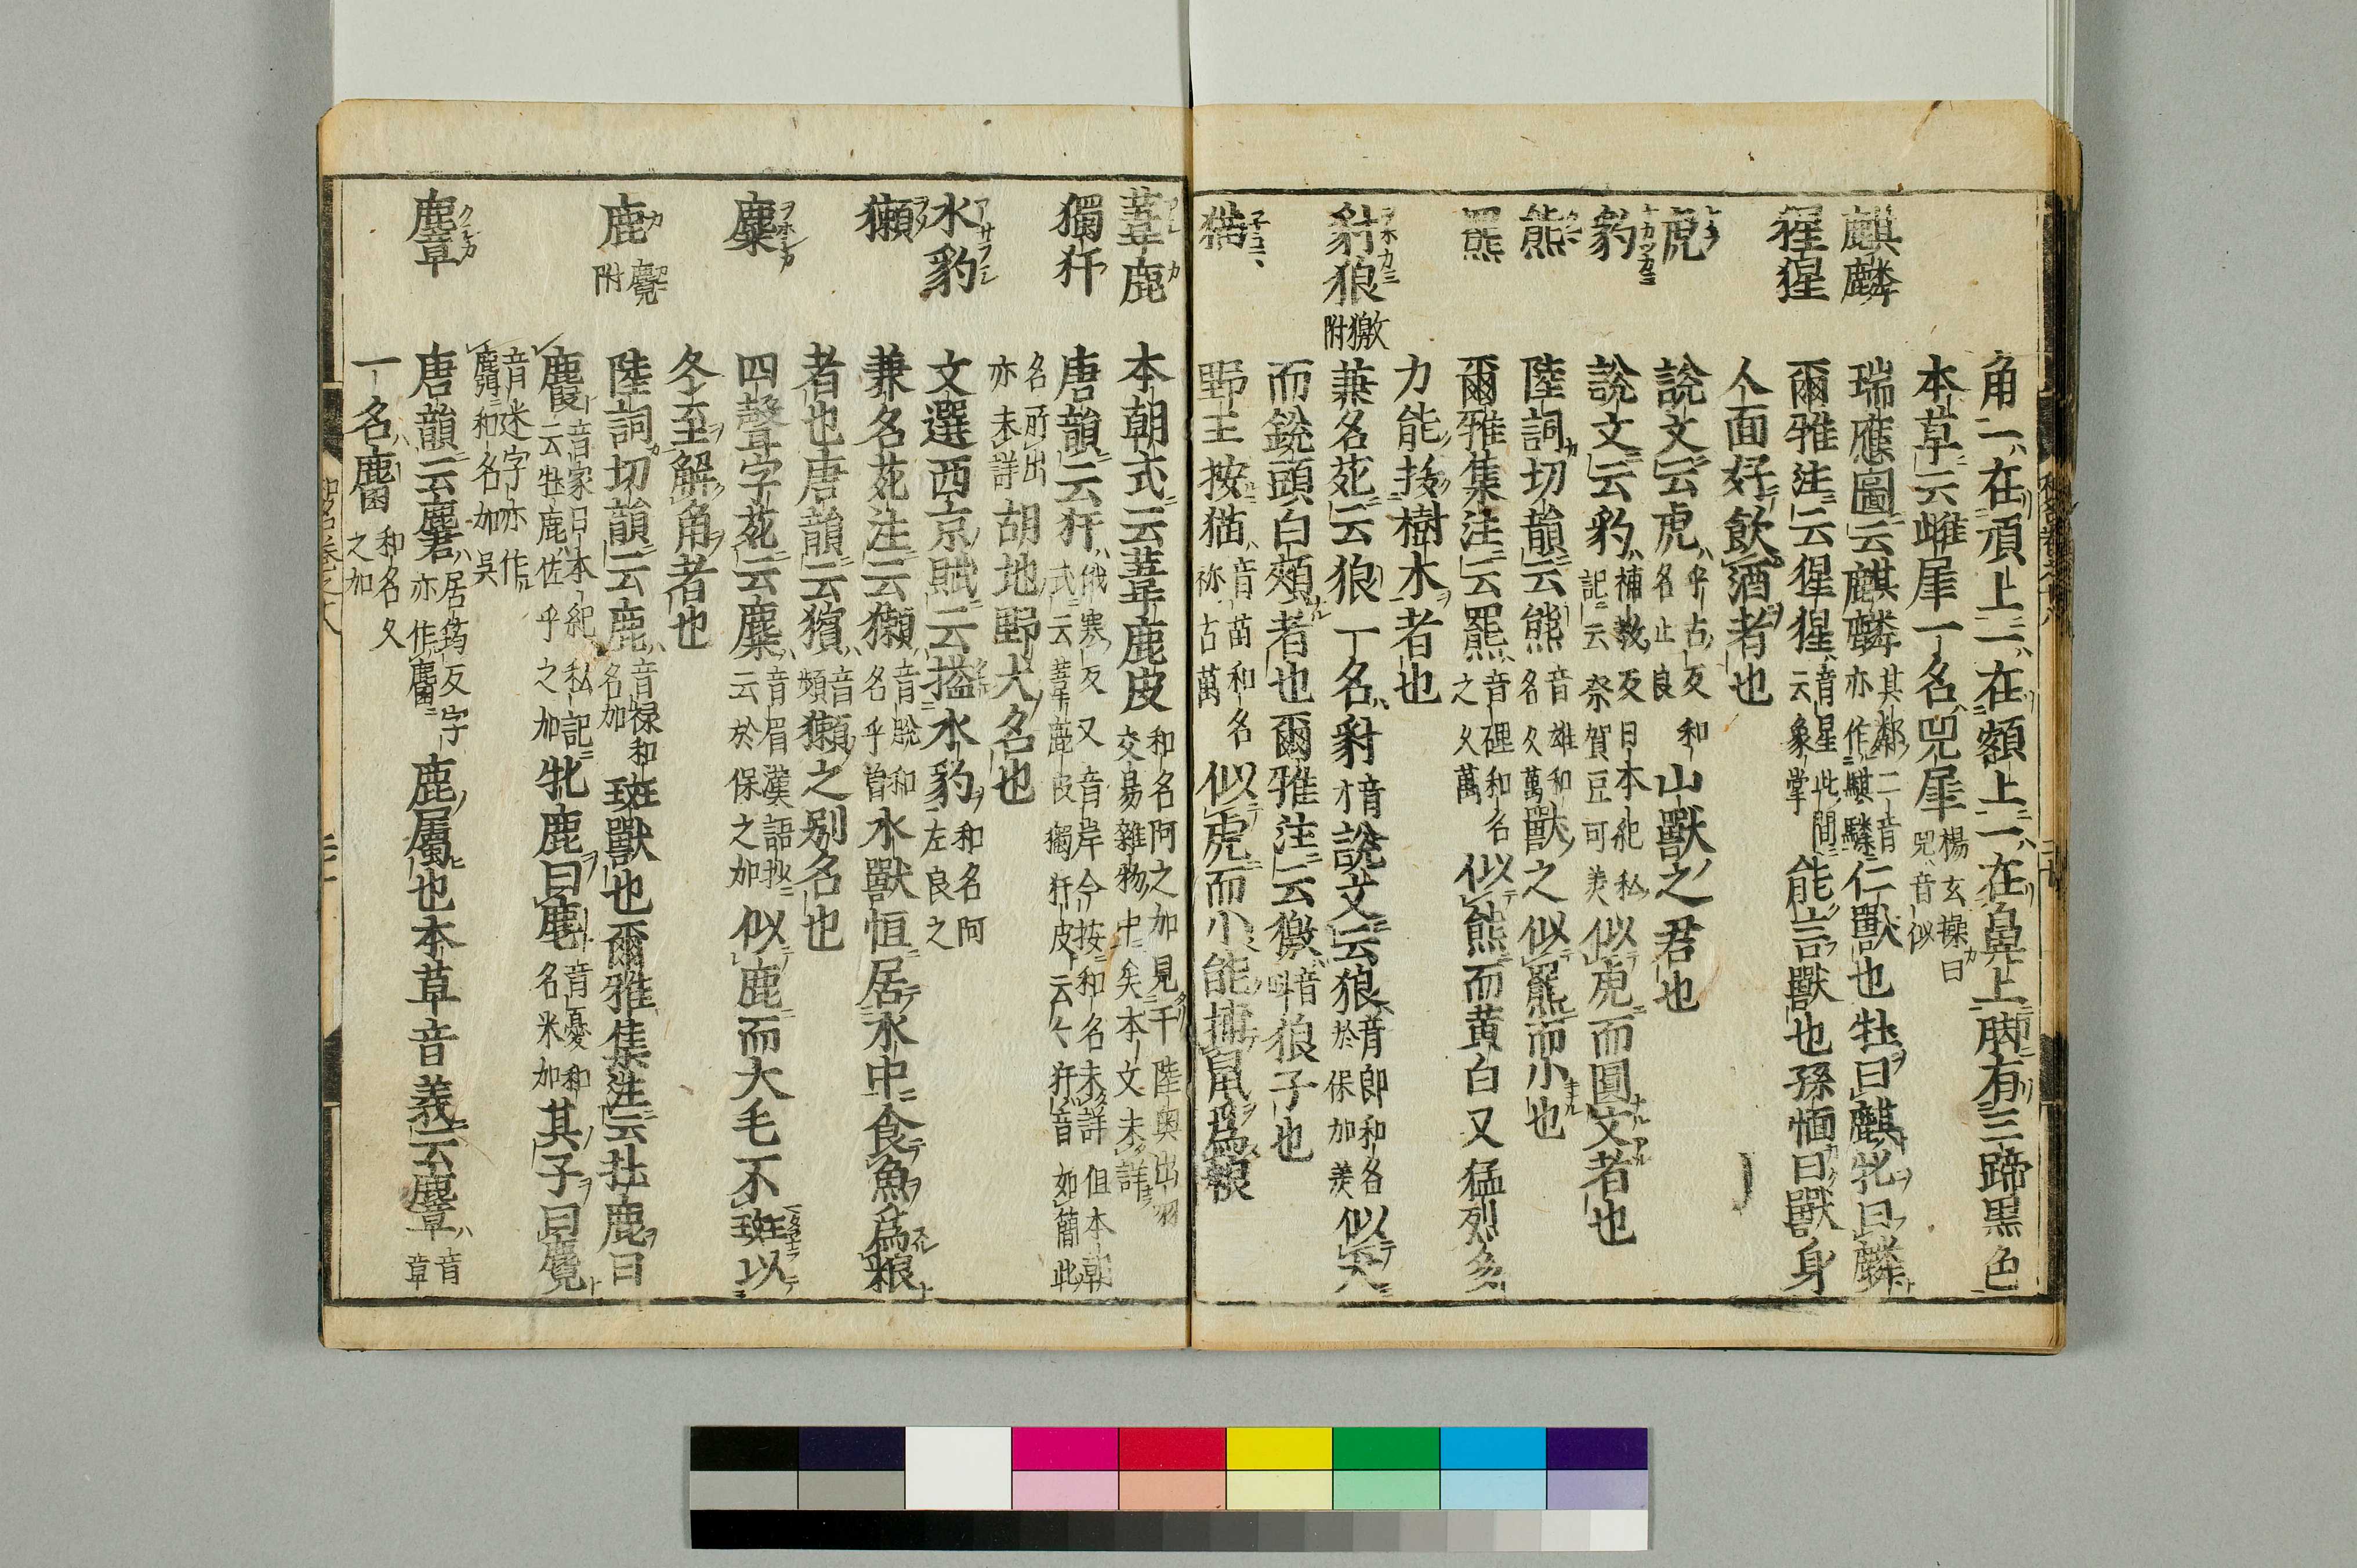 角一在頂上一在額上一在鼻上脚有三蹄黒色
本草云雌犀一名兕犀楊玄操曰兕音似
麒麟 瑞應圖云麒麟其鄰二音亦作騏驎仁獸也牡曰麒牝曰麟
猩猩 爾雅注云猩猩音星此間云象掌能言獸也孫愐曰獸身
人面好飲酒者也
虎 說文云虎乎古反和名止良山獸之君也
豹 說文云豹補敎反日本紀私記云奈賀豆可美似虎而圓文者也
熊 陸詞切韻云熊音雄和名久萬獸之似羆而小也
羆 爾雅集注云羆音碑和名之久萬似熊而黄白又猛烈多
力能拔樹木者也
豺狼 獥附 兼名苑云狼一名豺音才說文云狼音郎和名於保加美似犬
而銳頭白頰者也爾雅注云獥音叫狼子也
猫 野王按猫音苗和名祢古萬似虎而小能捕鼠爲粮
葦鹿 本朝式云葦鹿皮和名阿之加見于陸奥出羽交易雜物中矣本文未詳
獨犴 唐韻云犴俄寒反又音岸今按和名未詳但本朝式云葦鹿皮獨犴皮云々犴音如簡此
名所出亦未詳胡地野犬名也
水豹 文選西京賦云搤水豹和名阿左良之
獺 兼名苑注云獺音脫和名乎曽水獸恒居水中食魚爲粮
者也唐韻云獱音頻獺之别名也
麋 四聲字苑云麋音眉漢語抄云於保之加似鹿而大毛不斑以
冬至解角者也
鹿 麑附 陸詞切韻云鹿音禄和名加斑獸也爾雅集注云牡鹿曰
麚音家日本紀私記云牡鹿佐乎之加牝鹿曰麀音憂和名米加其子曰麑
音迷字亦作麛和名加吳
麞 唐韻云麏居筠反字亦作麕鹿属也本草音義云麞音章
一名麕和名久之加